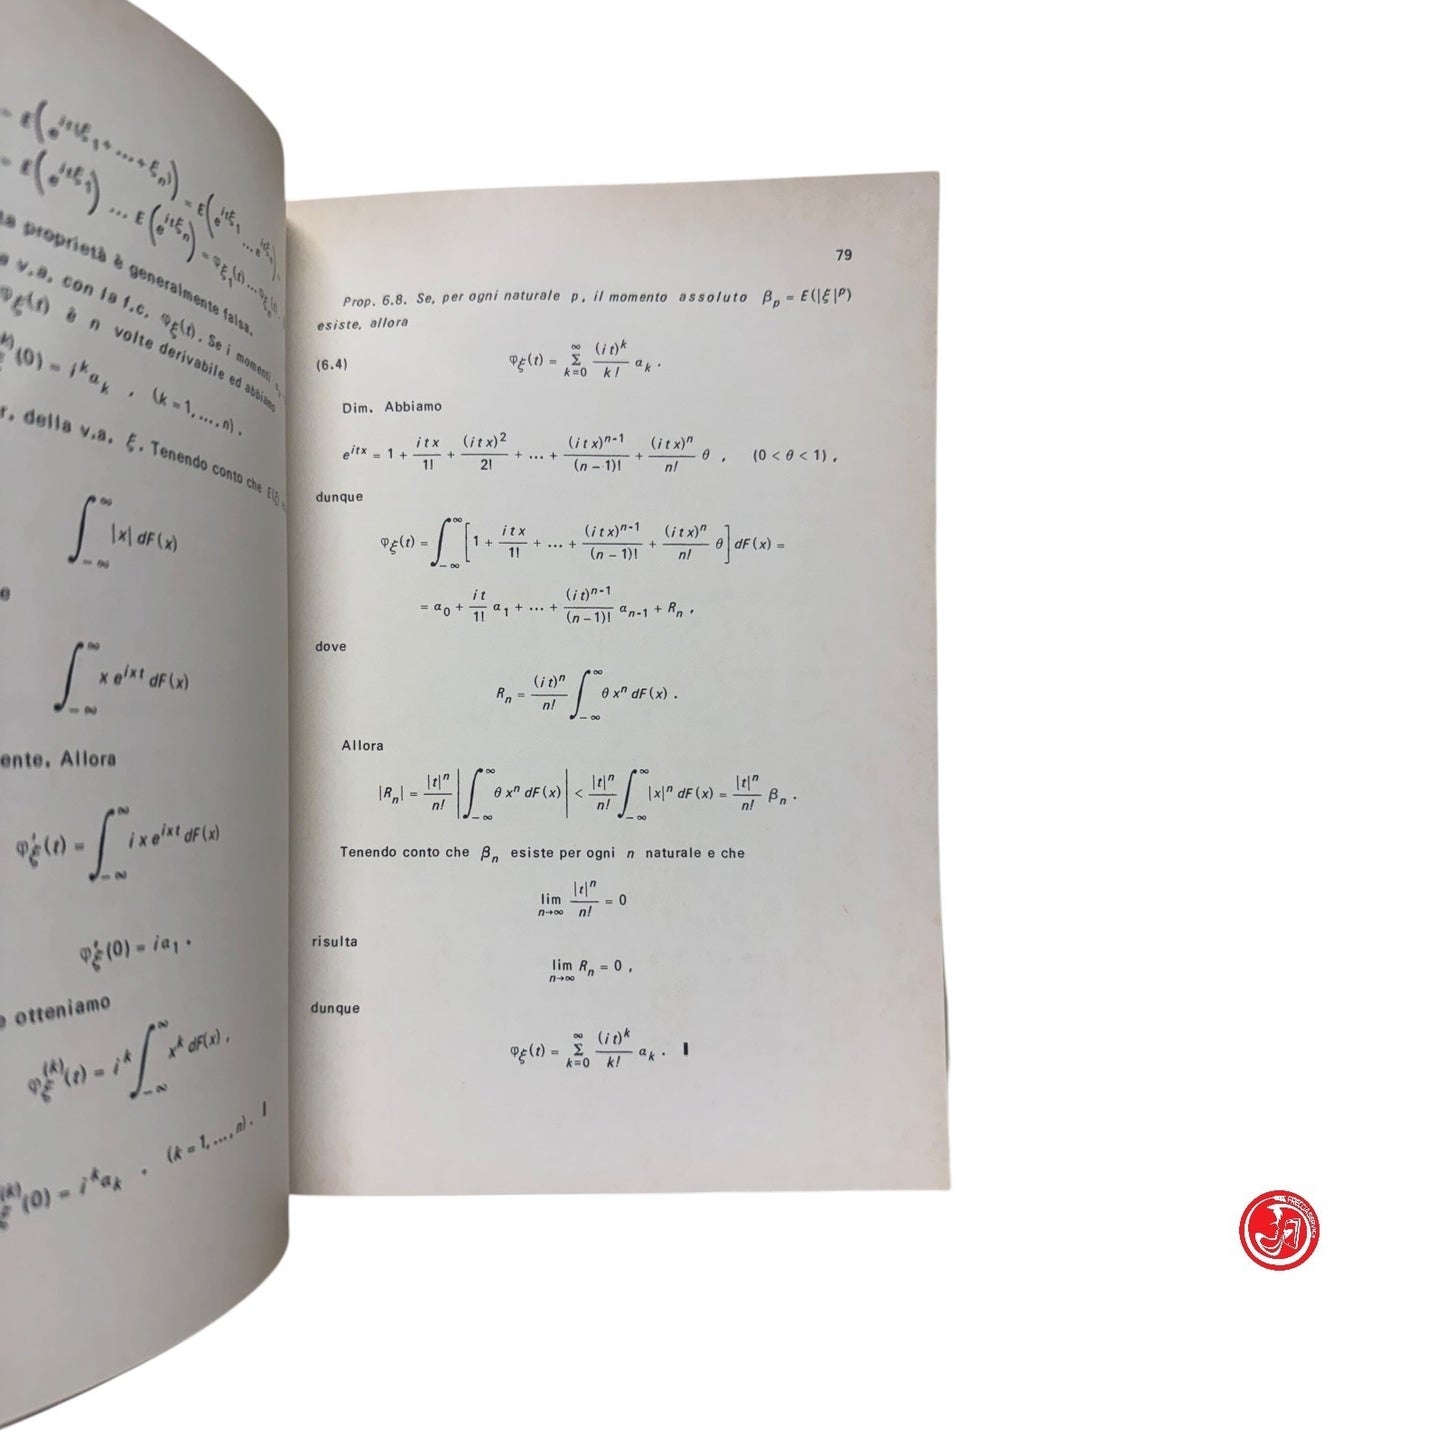 = E(e^{it(ξ_1+...+ξ_n)}) = E(e^{itξ_1} ... e^{itξ_n}) =
= E(e^{itξ_1}) ... E(e^{itξ_n}) = φ_{ξ_1}(t) ... φ_{ξ_n}(t).
proprietà è generalmente falsa.
v.a. con la f.c. φ_ξ(t). Se i momenti
φ_ξ(t) è n volte derivabile ed abbiamo
(0) = i^k α_k , (k = 1, ..., n).
della v.a. ξ. Tenendo conto che
∫_{-∞}^{∞} |x| dF(x)
e
∫_{-∞}^{∞} x e^{ixt} dF(x)
ente. Allora
φ'_ξ(t) = ∫_{-∞}^{∞} i x e^{ixt} dF(x)
φ'_ξ(0) = i α_1 .
otteniamo
φ_ξ^{(k)}(t) = i^k ∫_{-∞}^{∞} x^k dF(x),
(0) = i^k α_k . (k = 1, ..., n). ▌
79
Prop. 6.8. Se, per ogni naturale p, il momento assoluto β_p = E(|ξ|^p)
esiste, allora
(6.4) φ_ξ(t) = Σ_{k=0}^{∞} (it)^k / k! α_k .
Dim. Abbiamo
e^{itx} = 1 + itx/1! + (itx)^2/2! + ... + (itx)^{n-1}/(n-1)! + (itx)^n/n! θ , (0 < θ < 1) ,
dunque
φ_ξ(t) = ∫_{-∞}^{∞} [1 + itx/1! + ... + (itx)^{n-1}/(n-1)! + (itx)^n/n! θ] dF(x) =
= α_0 + it/1! α_1 + ... + (it)^{n-1}/(n-1)! α_{n-1} + R_n ,
dove
R_n = (it)^n/n! ∫_{-∞}^{∞} θ x^n dF(x) .
Allora
|R_n| = |t|^n/n! |∫_{-∞}^{∞} θ x^n dF(x)| < |t|^n/n! ∫_{-∞}^{∞} |x|^n dF(x) = |t|^n/n! β_n .
Tenendo conto che β_n esiste per ogni n naturale e che
lim_{n→∞} |t|^n/n! = 0
risulta
lim_{n→∞} R_n = 0 ,
dunque
φ_ξ(t) = Σ_{k=0}^{∞} (it)^k / k! α_k . ▌